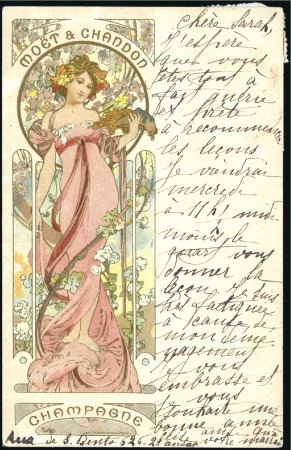 MOËT & CHANDON
CHAMPAGNE
Chère Sarah,
J'espère
que vous
êtes tout à
fait guérie
et prête
à recommencer
les leçons
Je viendrai
mercredi
à 11h½ midi
moins le
quart vous
donner la
leçon. Je suis
très fatiguée
à cause de
mon demé
nagement
Je vous
embrasse et
vous
souhaite une
bonne année
Rua de S. Bento 626 - 2º andar
votre